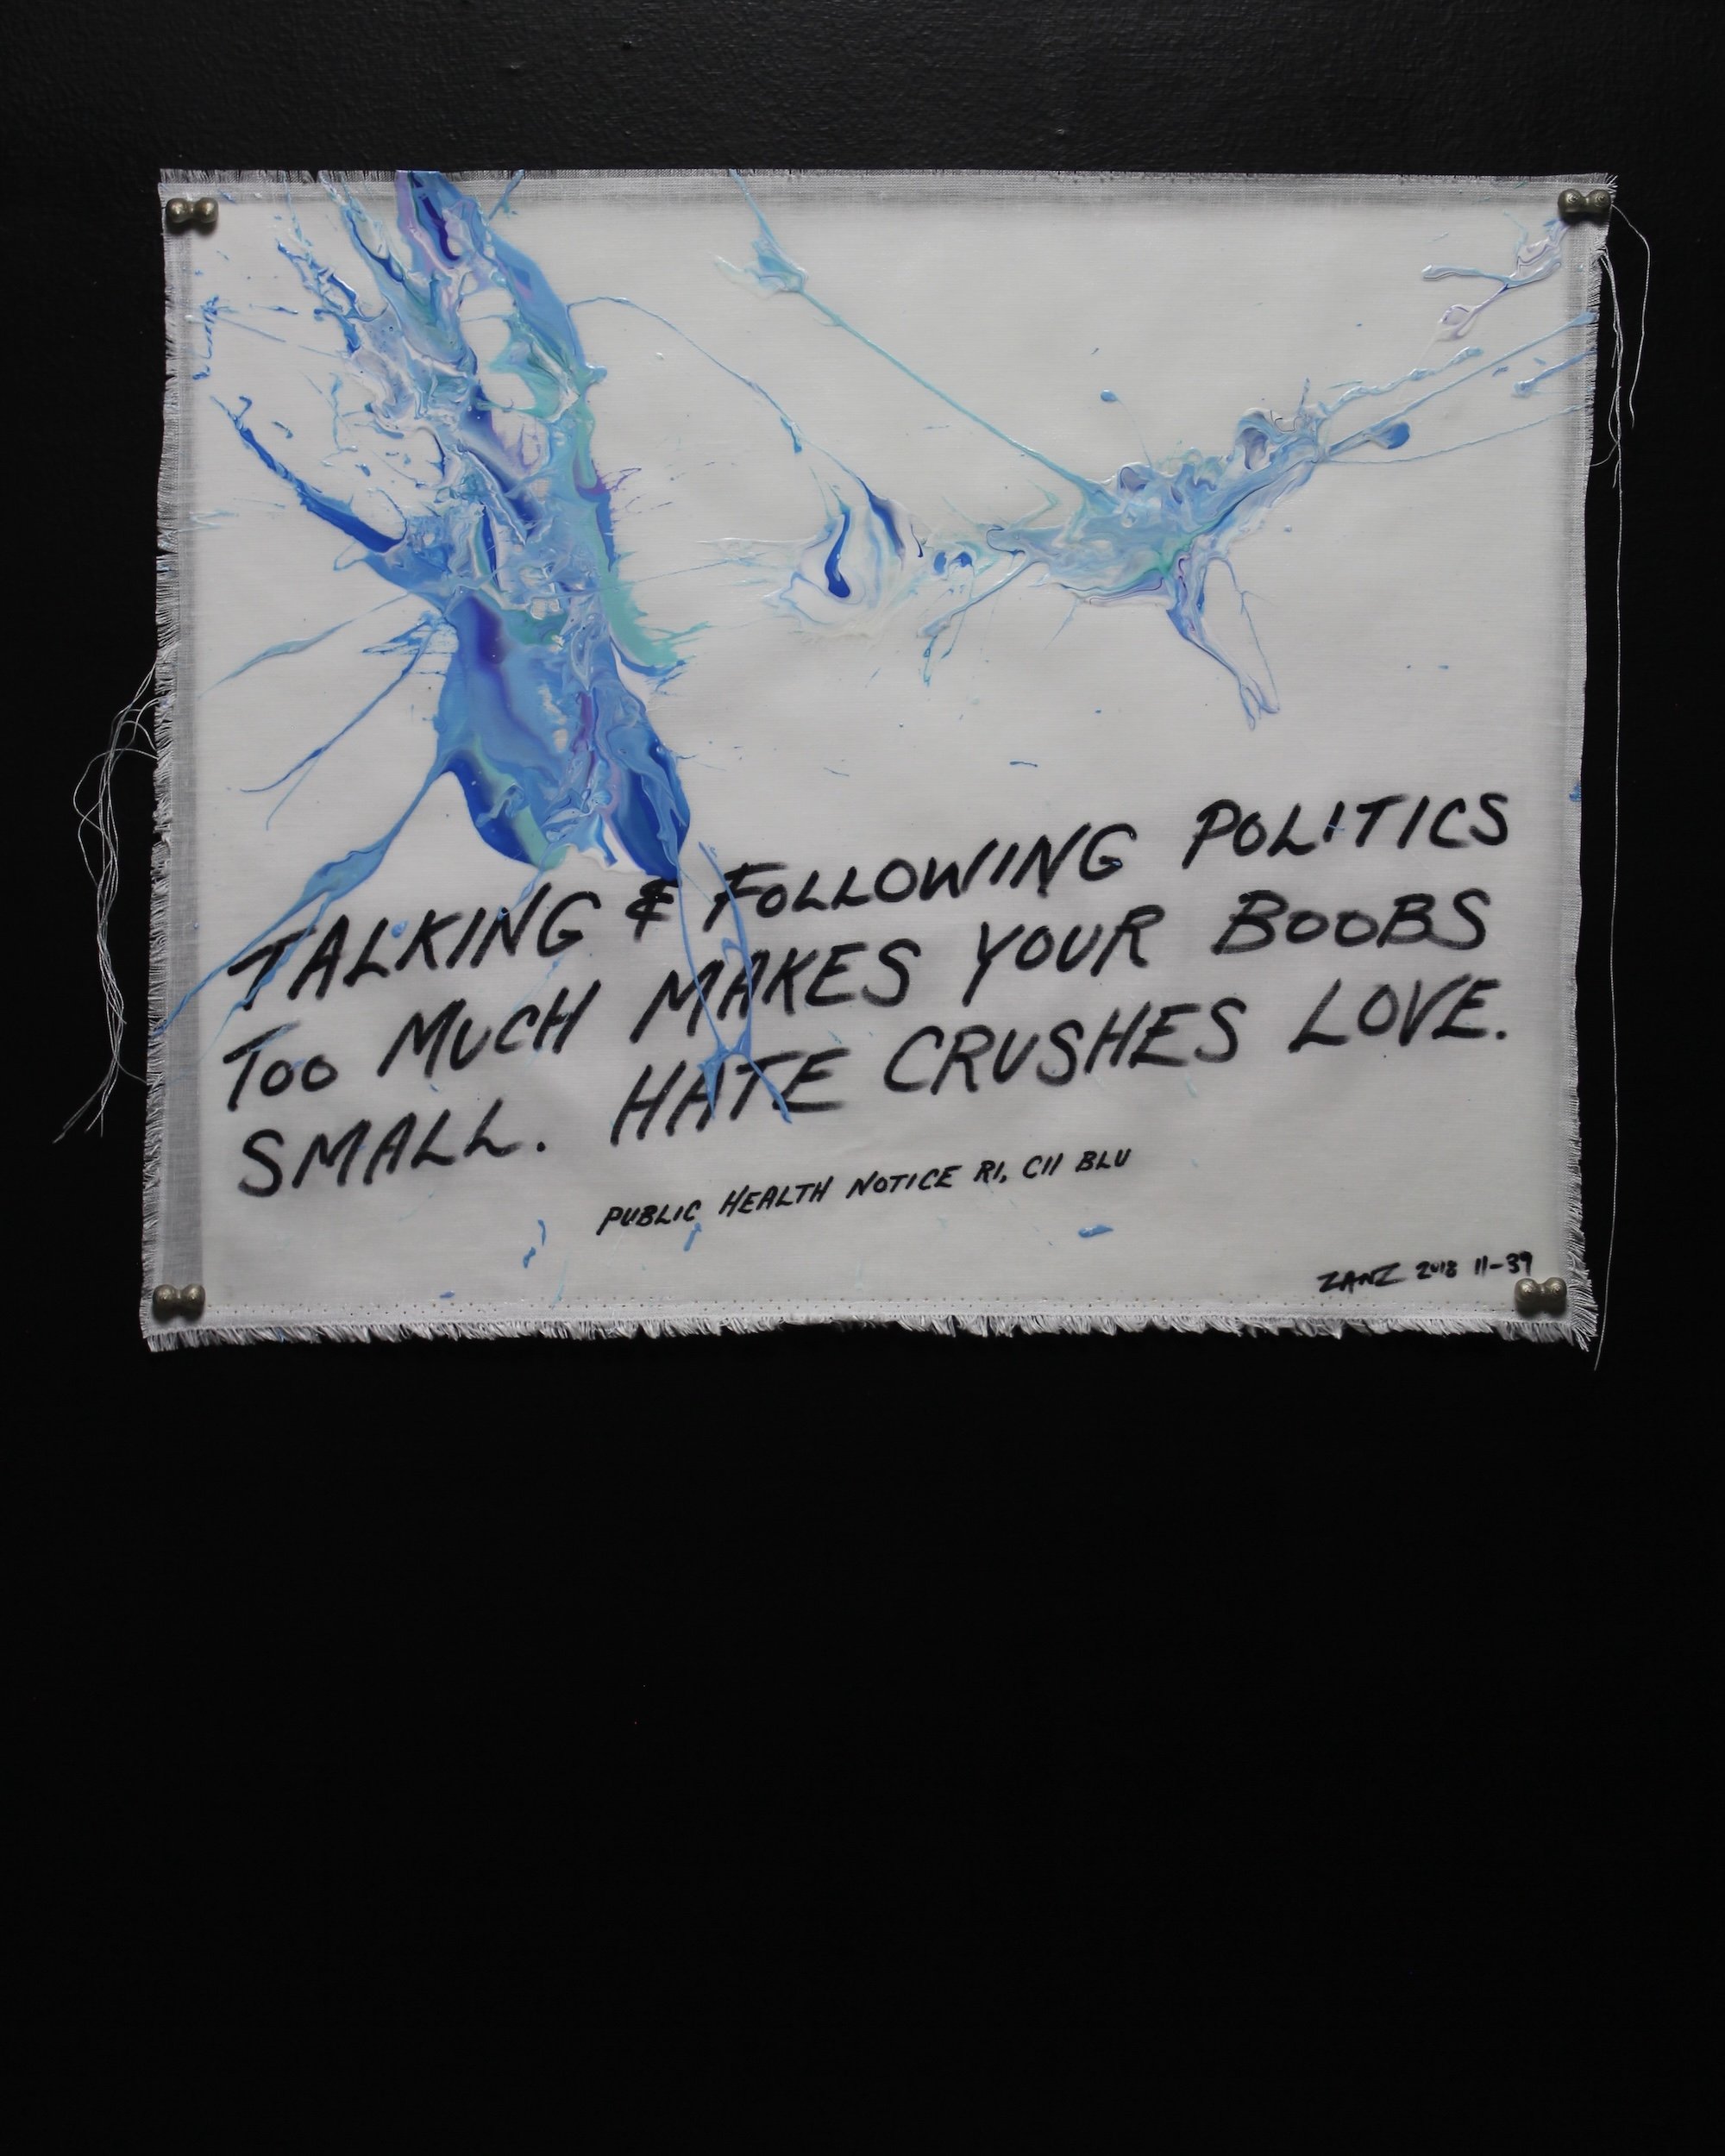 TALKING & FOLLOWING POLITICS
TOO MUCH MAKES YOUR BOOBS
SMALL. HATE CRUSHES LOVE.
PUBLIC HEALTH NOTICE R1, C11 BLU
ZANZ 2018 11-39